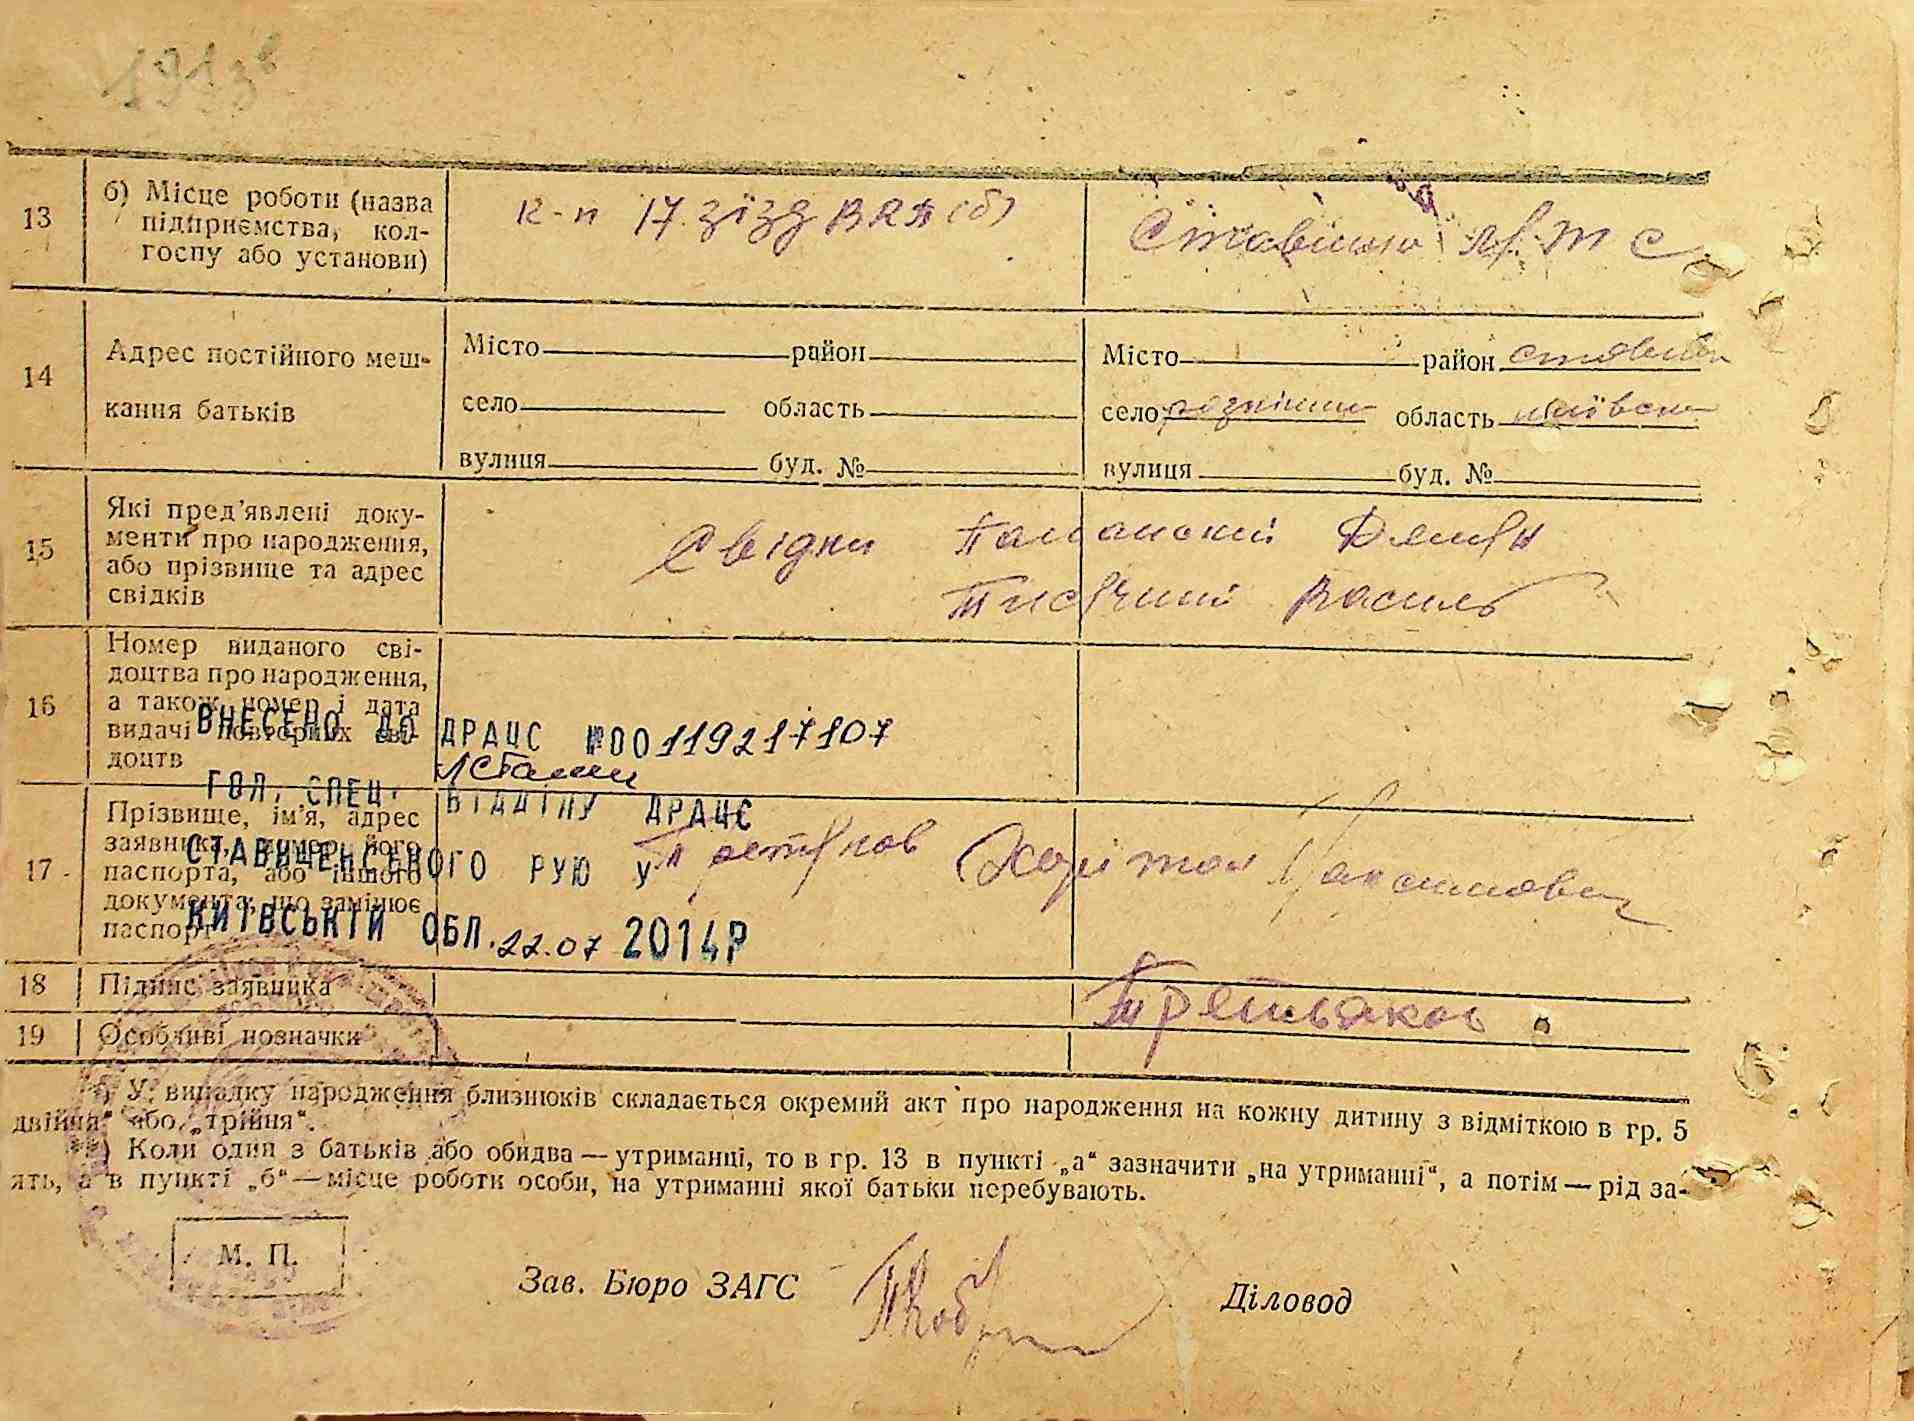 13
б) Місце роботи (назва
підприємства, кол-
госпу або установи)
к-п 17 зїзд ВКП(б)
М.Т.С
14
Адрес постійного меш-
кання батьків
Місто район
село область
вулиця буд. №
Місто район
село область
вулиця буд. №
15
Які пред'явлені доку-
менти про народження,
або прізвище та адрес
свідків
Свідки
Василь
16
Номер виданого сві-
доцтва про народження,
а також номер і дата
видачі повторних сві-
доцтв
ВНЕСЕНО ДО ДРАЦС №00119217107
ГОЛ. СПЕЦ. ВІДДІЛУ ДРАЦС
СТАВИЩЕНСЬКОГО РУЮ У
КИЇВСЬКІЙ ОБЛ. 22.07 2014Р
17
Прізвище, ім'я, адрес
заявника, номер його
паспорта, або іншого
документа, що замінює
паспорт
Харітон Максимович
18
Підпис заявника
Третьяков
19
Особливі позначки
*) У випадку народження близнюків складається окремий акт про народження на кожну дитину з відміткою в гр. 5
двійня“ або „трійня“.
**) Коли один з батьків або обидва — утриманці, то в гр. 13 в пункті „а“ зазначити „на утриманні“, а потім — рід за-
ять, а в пункті „б“ — місце роботи особи, на утриманні якої батьки перебувають.
М. П.
Зав. Бюро ЗАГС
Діловод